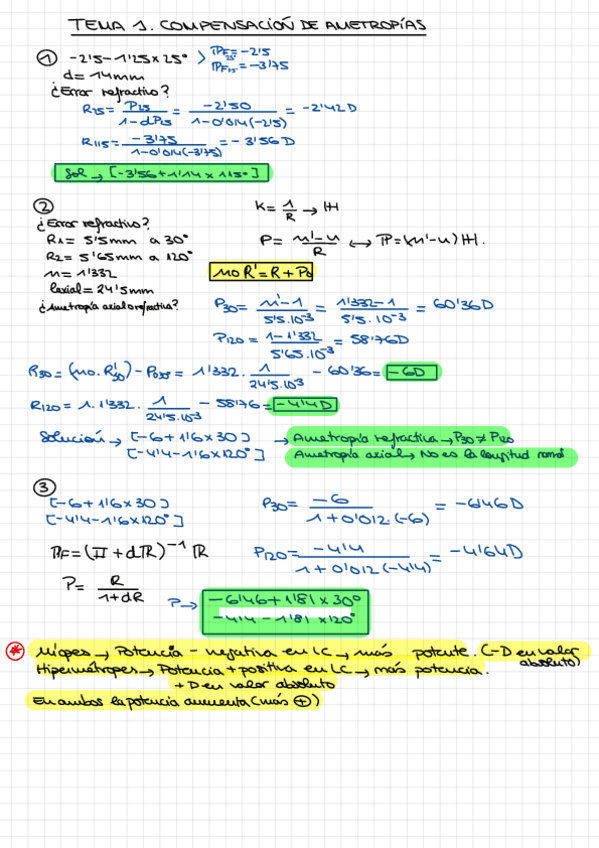 TEMA 1. COMPENSACIÓN DE AMETROPÍAS
① -2'5-1'25x25° > PF25=-2'5
PF115=-3'75
d=14mm
¿Error refractivo?
R25= P25/(1-dP25) = -2'50/(1-0'014(-2'5)) = -2'42D
R115= -3'75/(1-0'014(-3'75)) = -3'56D
Sol → [-3'56+1'14 x 115°]
② K= 1/R → H
¿Error refractivo?
R1= 5'5mm a 30° P= (n'-n)/R ↔ P=(n'-n)H.
R2= 5'65mm a 120°
n=1'332 no R'=R+Po
laxial=24'5mm
¿Ametropía axial o refractiva? P30= (n'-1)/(5'5.10-3) = (1'332-1)/(5'5.10-3) = 60'36D
P120= (1-1'332)/(5'65.10-3) = 58'76D
R30= (no.R'30)-P030= 1'332. 1/(24'5.10-3) - 60'36= -6D
R120= 1.1'332. 1/(24'5.10-3) - 58'76= -4'4D
Solución → [-6+1'6x30] → Ametropía refractiva → P30≠P120
[-4'4-1'6x120°] Ametropía axial → No es la longitud
③
[-6+1'6x30] P30= -6/(1+0'012.(-6)) = -6'46D
[-4'4-1'6x120°]
PF=(II+dR)-1 R P120= -4'4/(1+0'012.(-4'4)) = -4'64D
P= R/(1+dR) P→ -6'46+1'81x30°
-4'14-1'81x120°
* Miopes → Potencia - negativa en LC → más potente. (-D en valor absoluto)
Hipermétropes → Potencia + positiva en LC → más potencia.
+D en valor absoluto
En ambos la potencia aumenta (más ⊕)